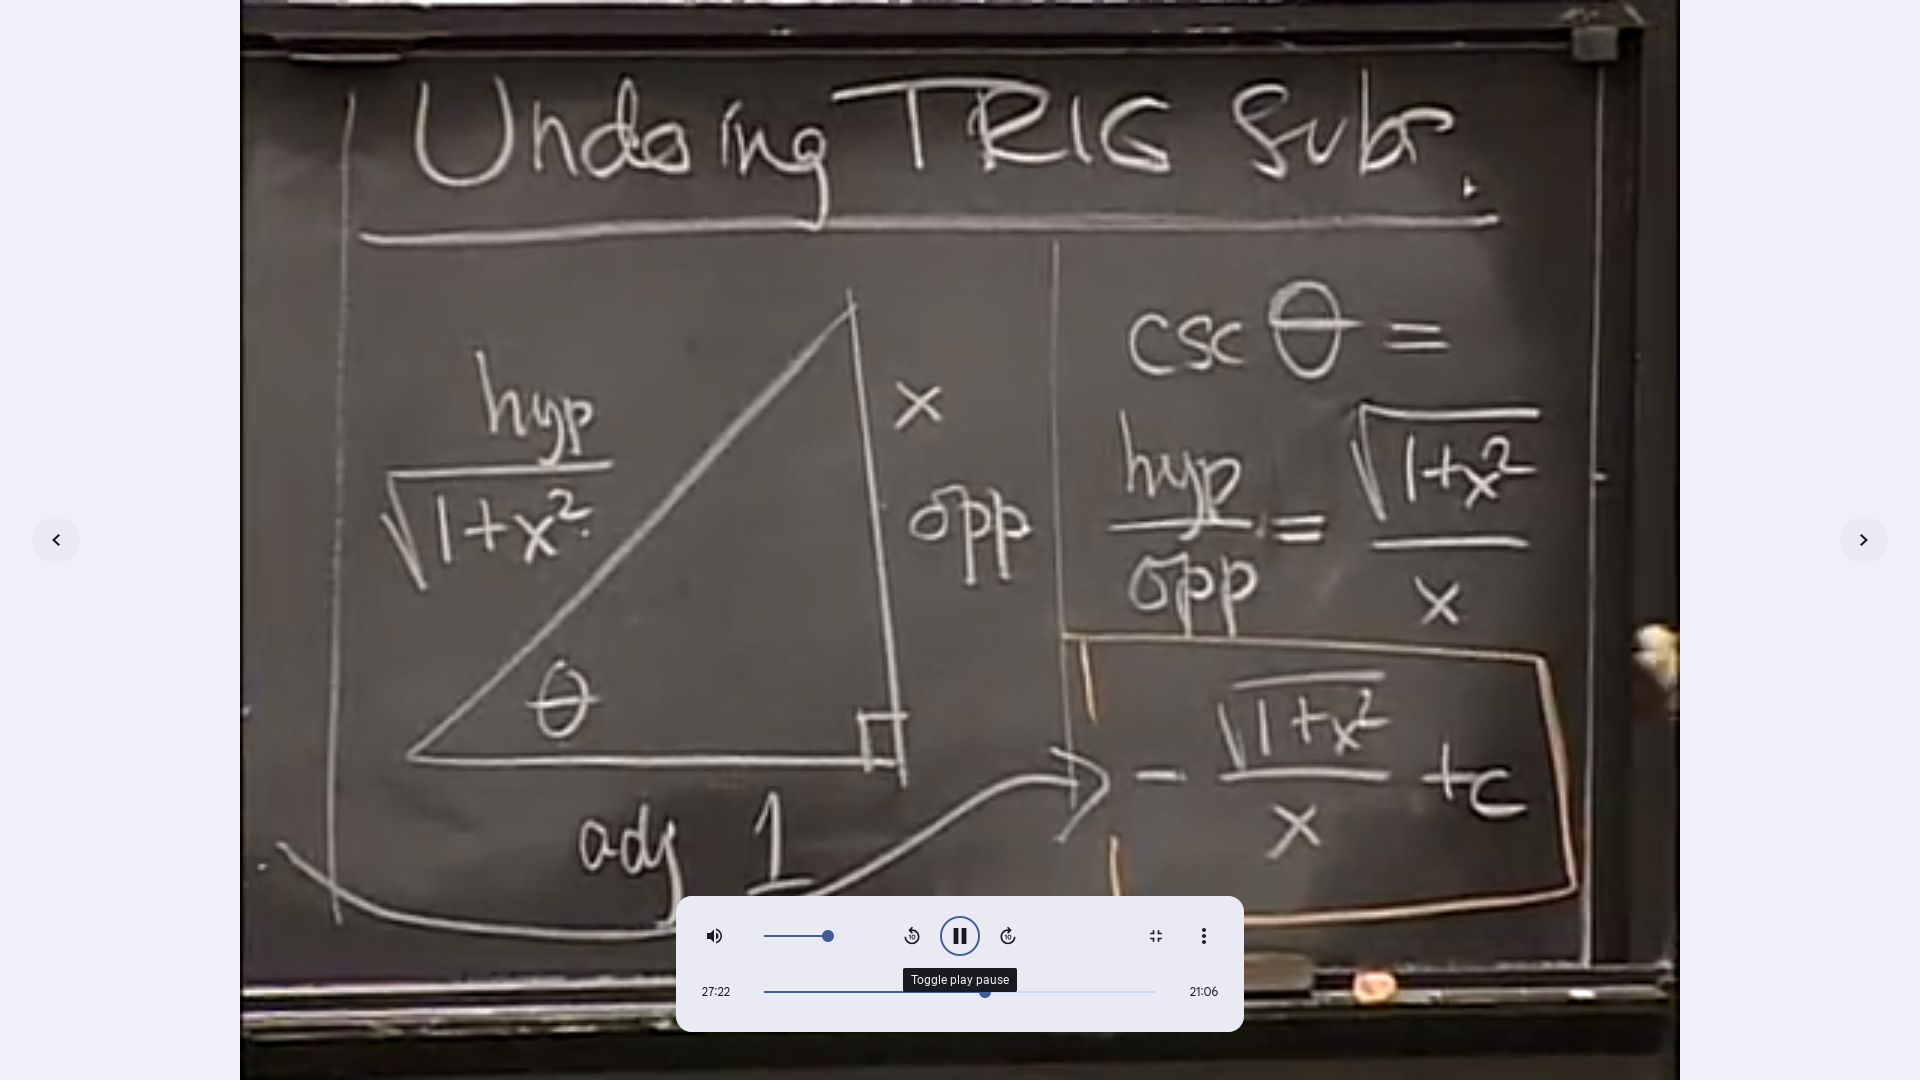 Undoing TRIG Subs.
hyp
√1+x²
x
opp
θ
adj 1
csc θ =
hyp/opp = √1+x²/x
- √1+x²/x +c
10
10
Toggle play pause
27:22
21:06